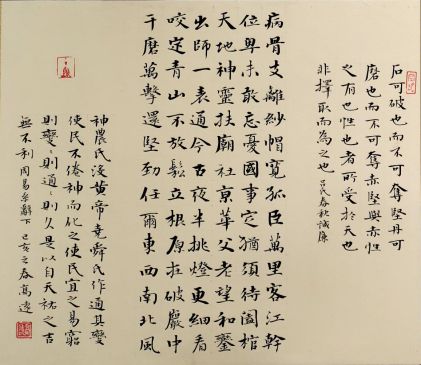 石可破也而不可奪堅丹可
磨也而不可奪赤堅與赤性
之有也性也者所受於天也
非擇取而為之也 呂氏春秋誠廉
病骨支離紗帽寬孤臣萬里客江幹
位卑未敢忘憂國事定猶須待闔棺
天地神靈扶廟社京華父老望和鑾
出師一表通今古夜半挑燈更細看
咬定青山不放鬆立根原在破巖中
千磨萬擊還堅勁任爾東西南北風
神農氏沒黃帝堯舜氏作通其變
使民不倦神而化之使民宜之易窮
則變〻則通〻則久是以自天祐之吉
無不利 周易系辭下 己亥之春高